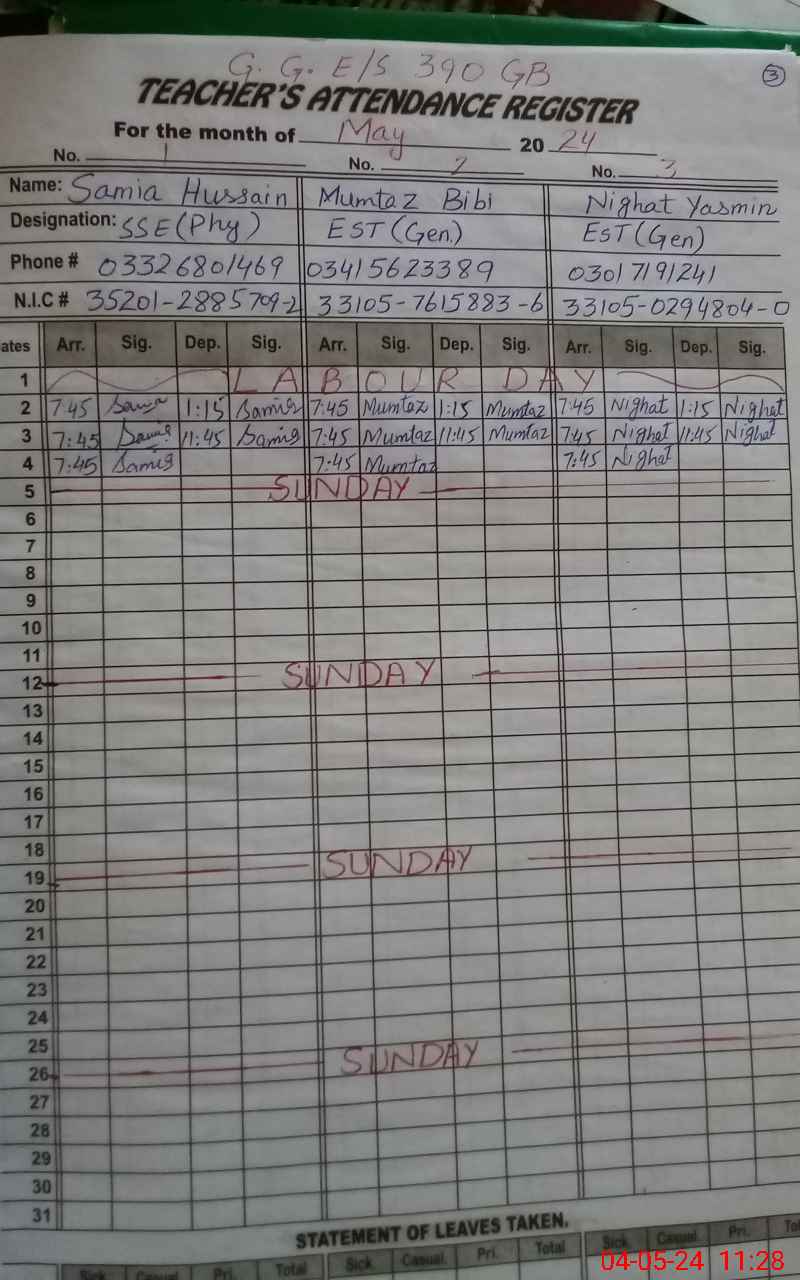 G. G. E/S 390 GB
3
TEACHER'S ATTENDANCE REGISTER
For the month of May 2024
No. 1 No. 2 No. 3
Name: Samia Hussain Mumtaz Bibi Nighat Yasmin
Designation: SSE(Phy) EST(Gen.) EST(Gen)
Phone # 03326801469 03415623389 03017191241
N.I.C # 35201-2885709-2 33105-7615883-6 33105-0294804-0
ates Arr. Sig. Dep. Sig. Arr. Sig. Dep. Sig. Arr. Sig. Dep. Sig.
1 LABOUR DAY
2 7:45 Samia 1:15 Samia 7:45 Mumtaz 1:15 Mumtaz 7:45 Nighat 1:15 Nighat
3 7:45 Samia 11:45 Samia 7:45 Mumtaz 11:45 Mumtaz 7:45 Nighat 11:45 Nighat
4 7:45 Samia 7:45 Mumtaz 7:45 Nighat
5 SUNDAY
6
7
8
9
10
11
12 SUNDAY
13
14
15
16
17
18
19 SUNDAY
20
21
22
23
24
25
26 SUNDAY
27
28
29
30
31
STATEMENT OF LEAVES TAKEN.
Sick Casual Pri. Total Sick Casual Pri. Total Sick Casual Pri. Tot
04-05-24 11:28